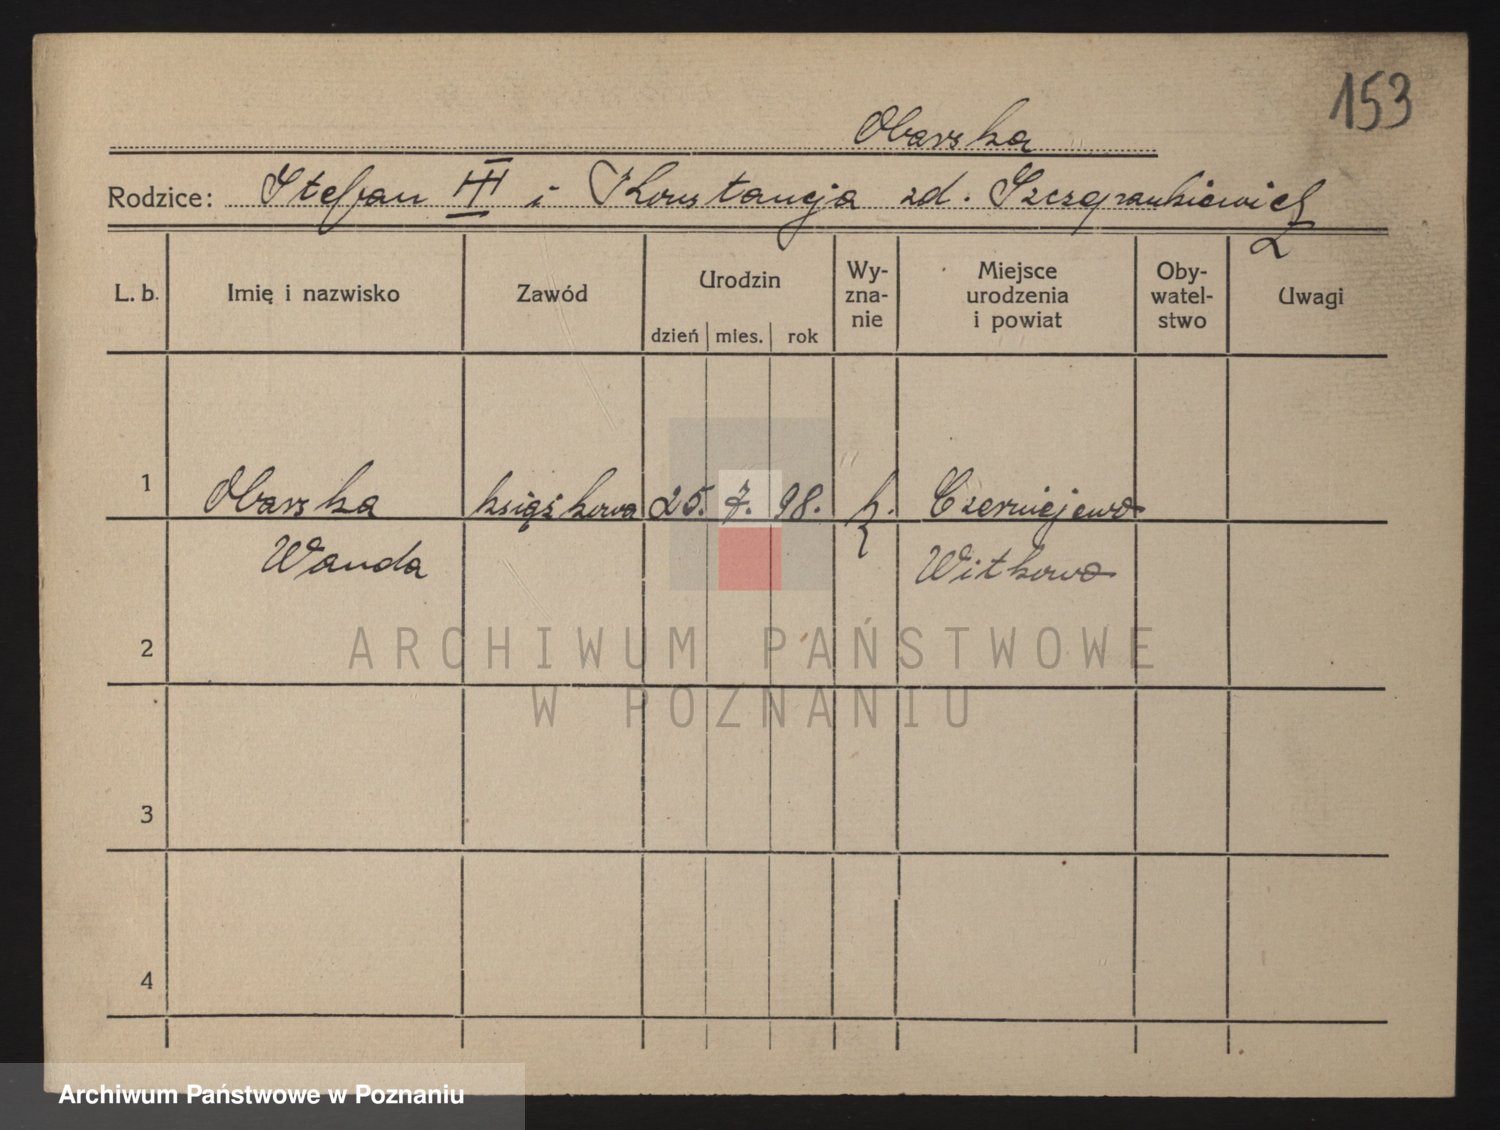 153
Obarska
Rodzice: Stefan III i Konstancja zd. Szczepankiewicz
L. b. Imię i nazwisko Zawód Urodzin Wy-zna-nie Miejsce urodzenia i powiat Oby-watel-stwo Uwagi
dzień mies. rok
1 Obarska książkowa 25. 7. 98. k. Czerniejewo
Wanda Witkowo
2
ARCHIWUM PAŃSTWOWE
W POZNANIU
3
4
Archiwum Państwowe w Poznaniu